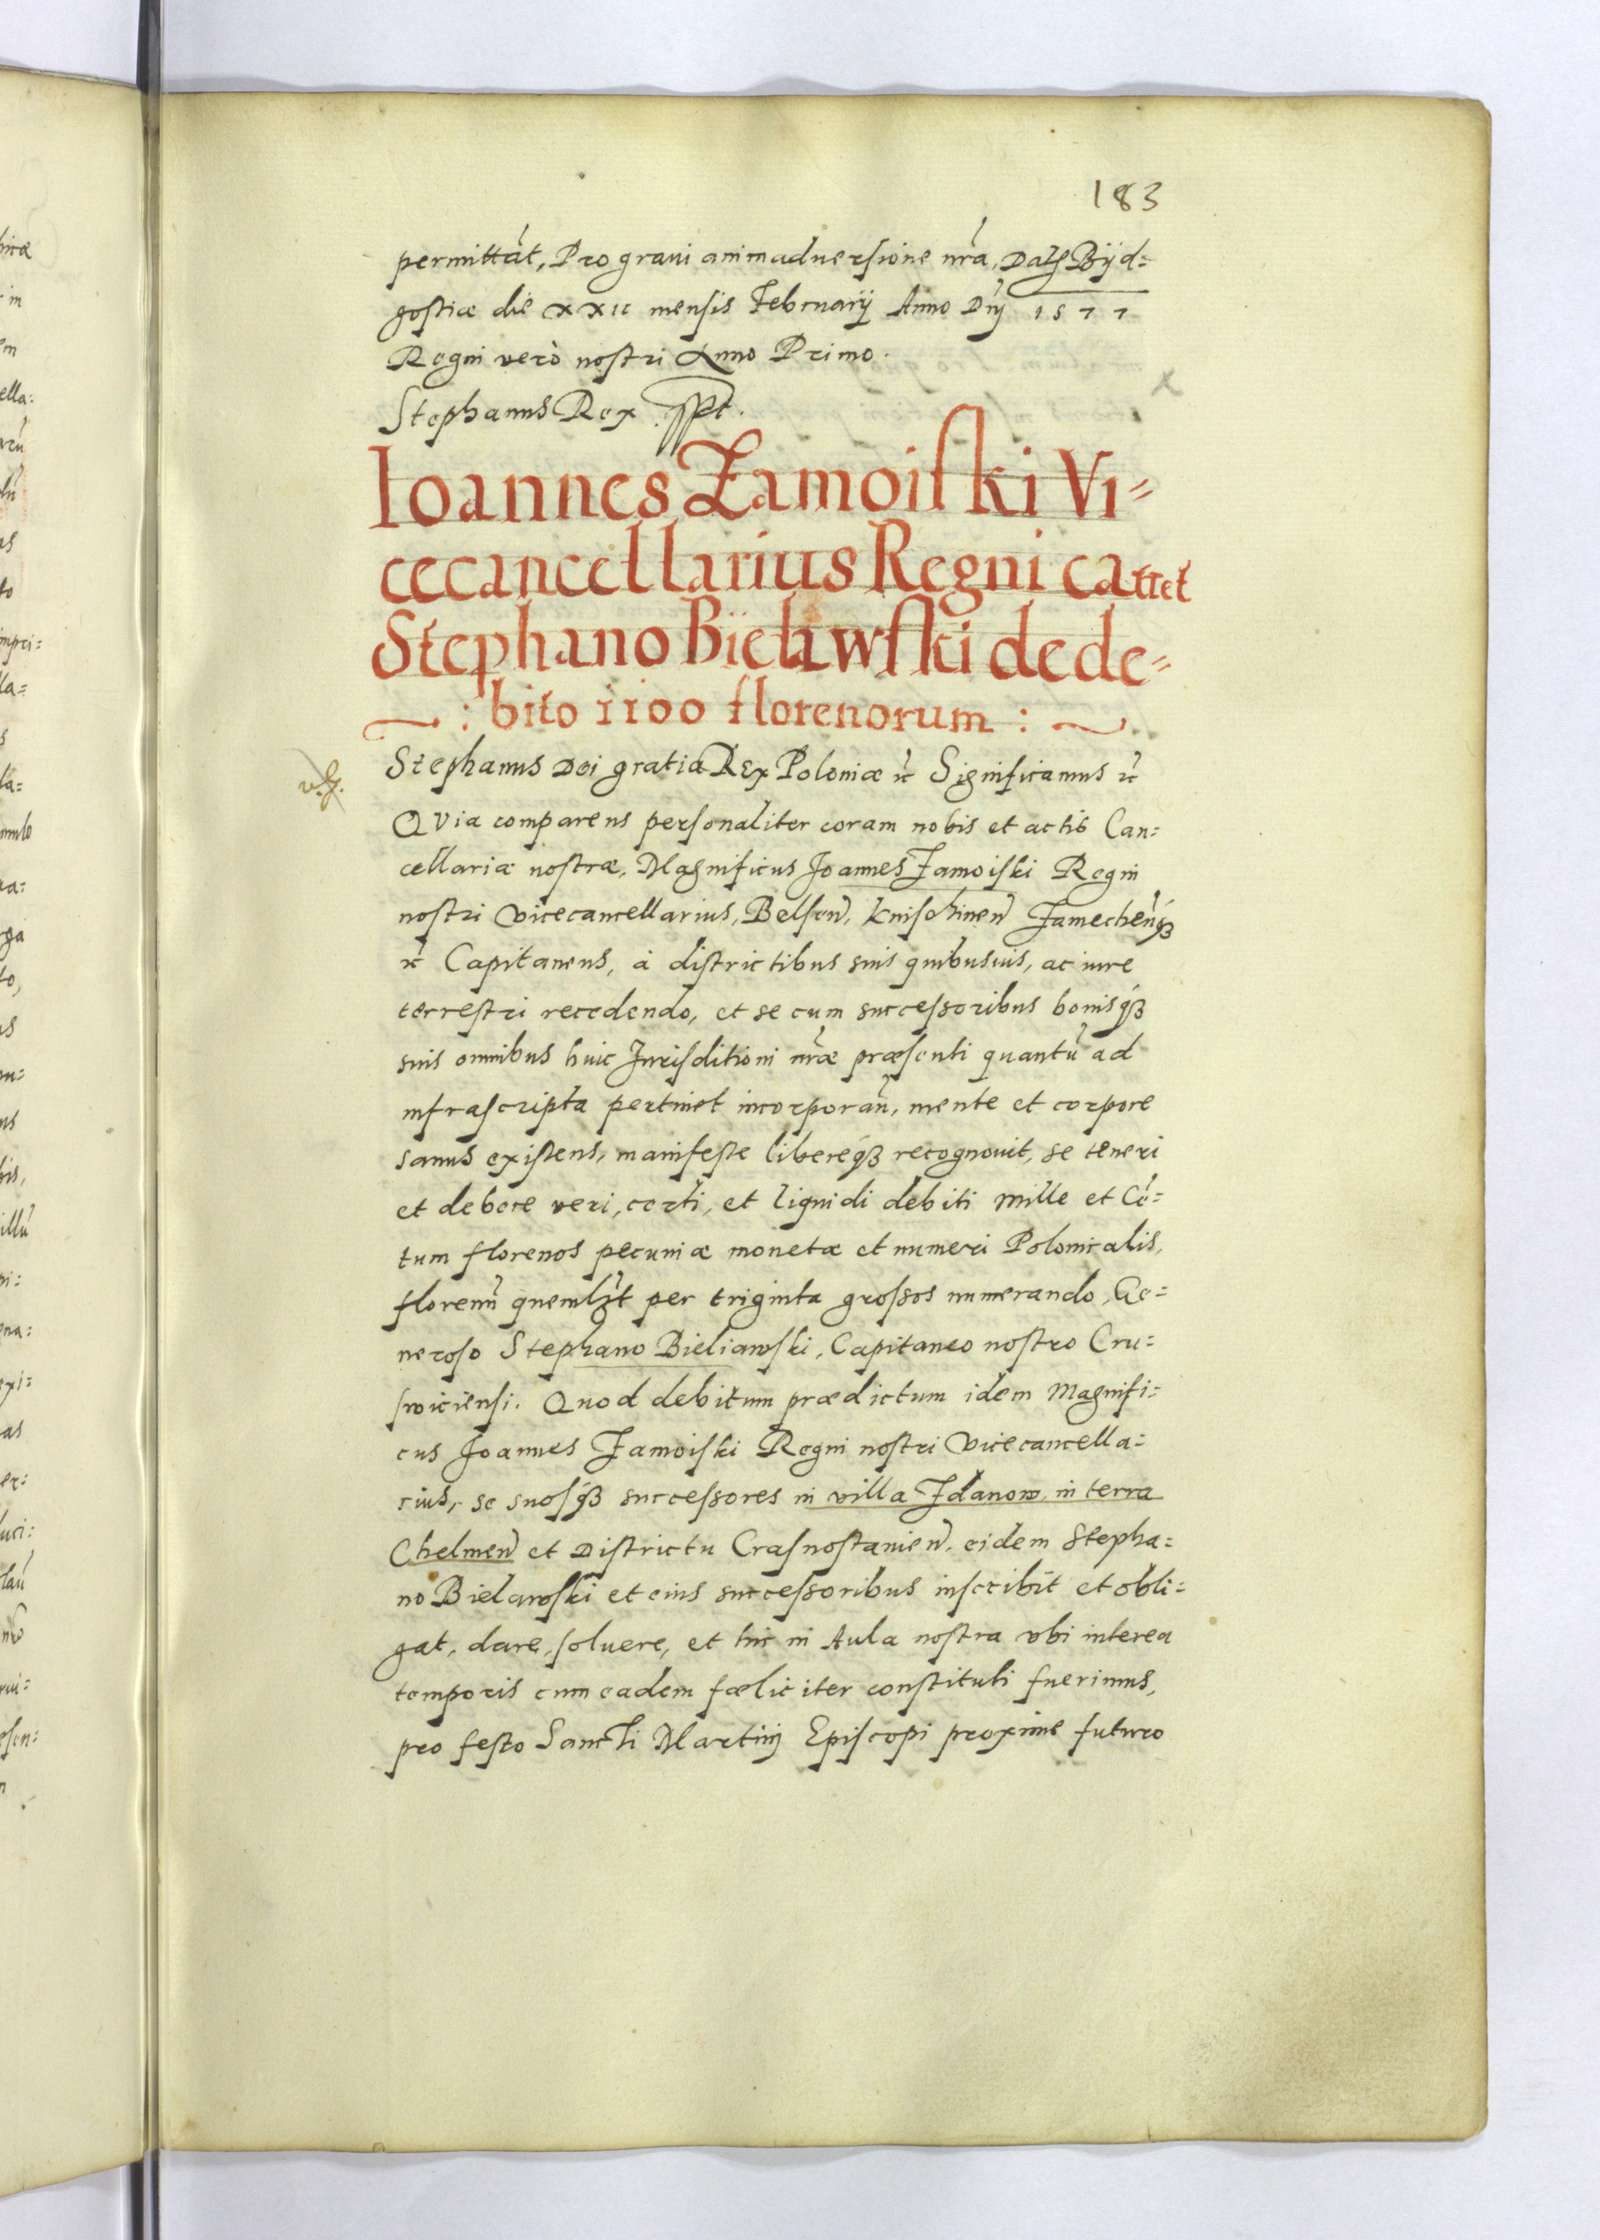 183
permittāt, Pro graui animaduersione nr̃a, Datę Bÿd=
gostiæ die XXII mensis Februarÿ Anno Dnĩ 1577
Regni verò nostri Anno Primo.
Stephanus Rex sspt.
Ioannes Zamoiski Vi=
cecancellarius Regni cauet
Stephano Bielawski de de=
: bito 1100 florenorum :
Stephanus Dei gratia Rex Poloniæ ec̃ Significamus ec̃
QVia comparens personaliter coram nobis et actis Can=
cellariæ nostræ, Magnificus Joannes Zamoiski Regni
nostri Vicecancellarius, Belseñ, Knischineñ Zamecheñq3
ec̃ Capitaneus, à districtibus suis quibusuis, ac iure
terrestri recedendo, et se cum successoribus bonisq3
suis omnibus huic Jurisditioni nr̃æ præsenti quantũ ad
infrascripta pertinet incorporañ, mente et corpore
sanus existens, manifeste libereq3 recognouit, se teneri
et debere veri, certi, et liquidi debiti mille et Cẽ=
tum florenos pecuniæ monetæ et numeri Polonicalis,
florenũ quemlĩt per triginta grossos numerando, Ge=
neroso Stephano Bieliawski, Capitaneo nostro Cru=
swiciensi. Quod debitum prædictum idem Magnifi=
cus Joannes Zamoiski Regni nostri Vicecancella=
rius, se suosq3 successores in villa Zdanow, in terra
Chelmeñ et Districtu Crasnostawieñ, eidem Stepha=
no Bielawski et eius successoribus inscribit et obli=
gat, dare, soluere, et hic in Aula nostra vbi interea
temporis cum eadem fœliciter constituti fuerimus,
pro festo Sancti Martinÿ Episcopi proxime futuro